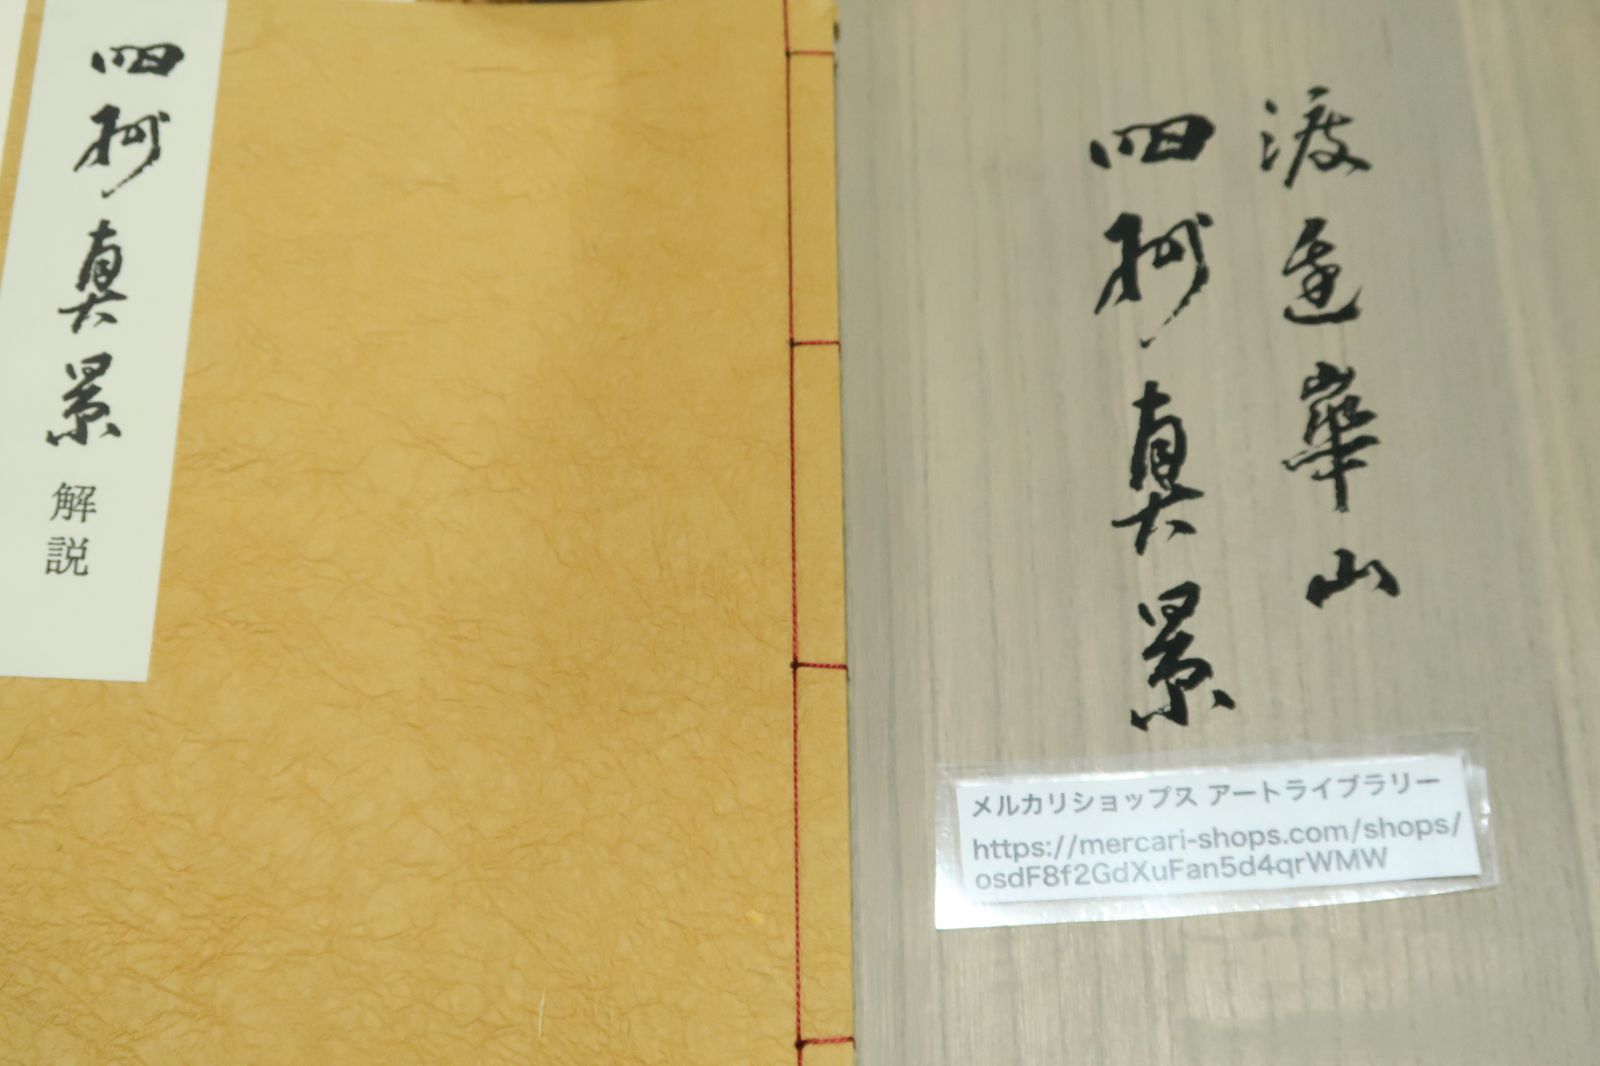 四州真景
解説
渡邉崋山
四州真景
メルカリショップス アートライブラリー
https://mercari-shops.com/shops/
osdF8f2GdXuFan5d4qrWMW